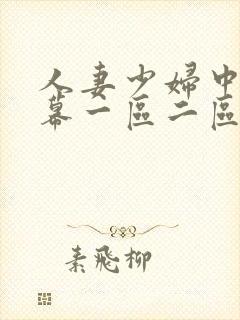 人妻少婦中
幕一區二區
素飛柳